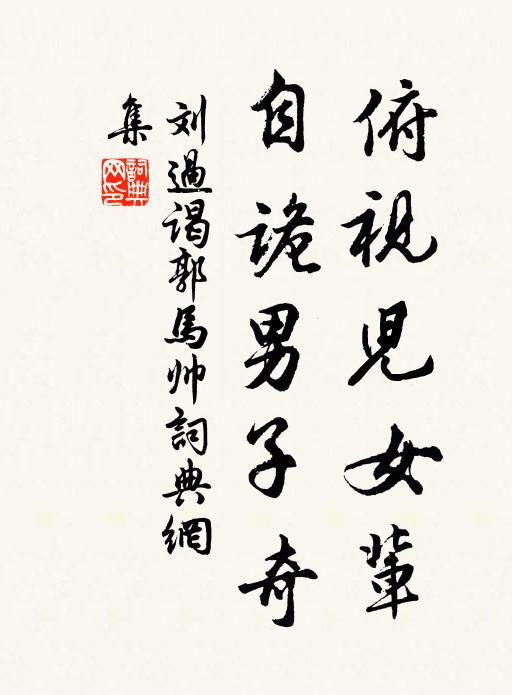 俯視兒女輩
自詭男子奇
刘過謁郭馬帅詞典網
集
詞典網印